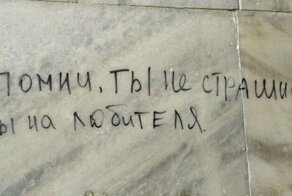 ПОМНИ, ТЫ НЕ СТРАШН
ТЫ НА ЛЮБИТЕЛЯ.